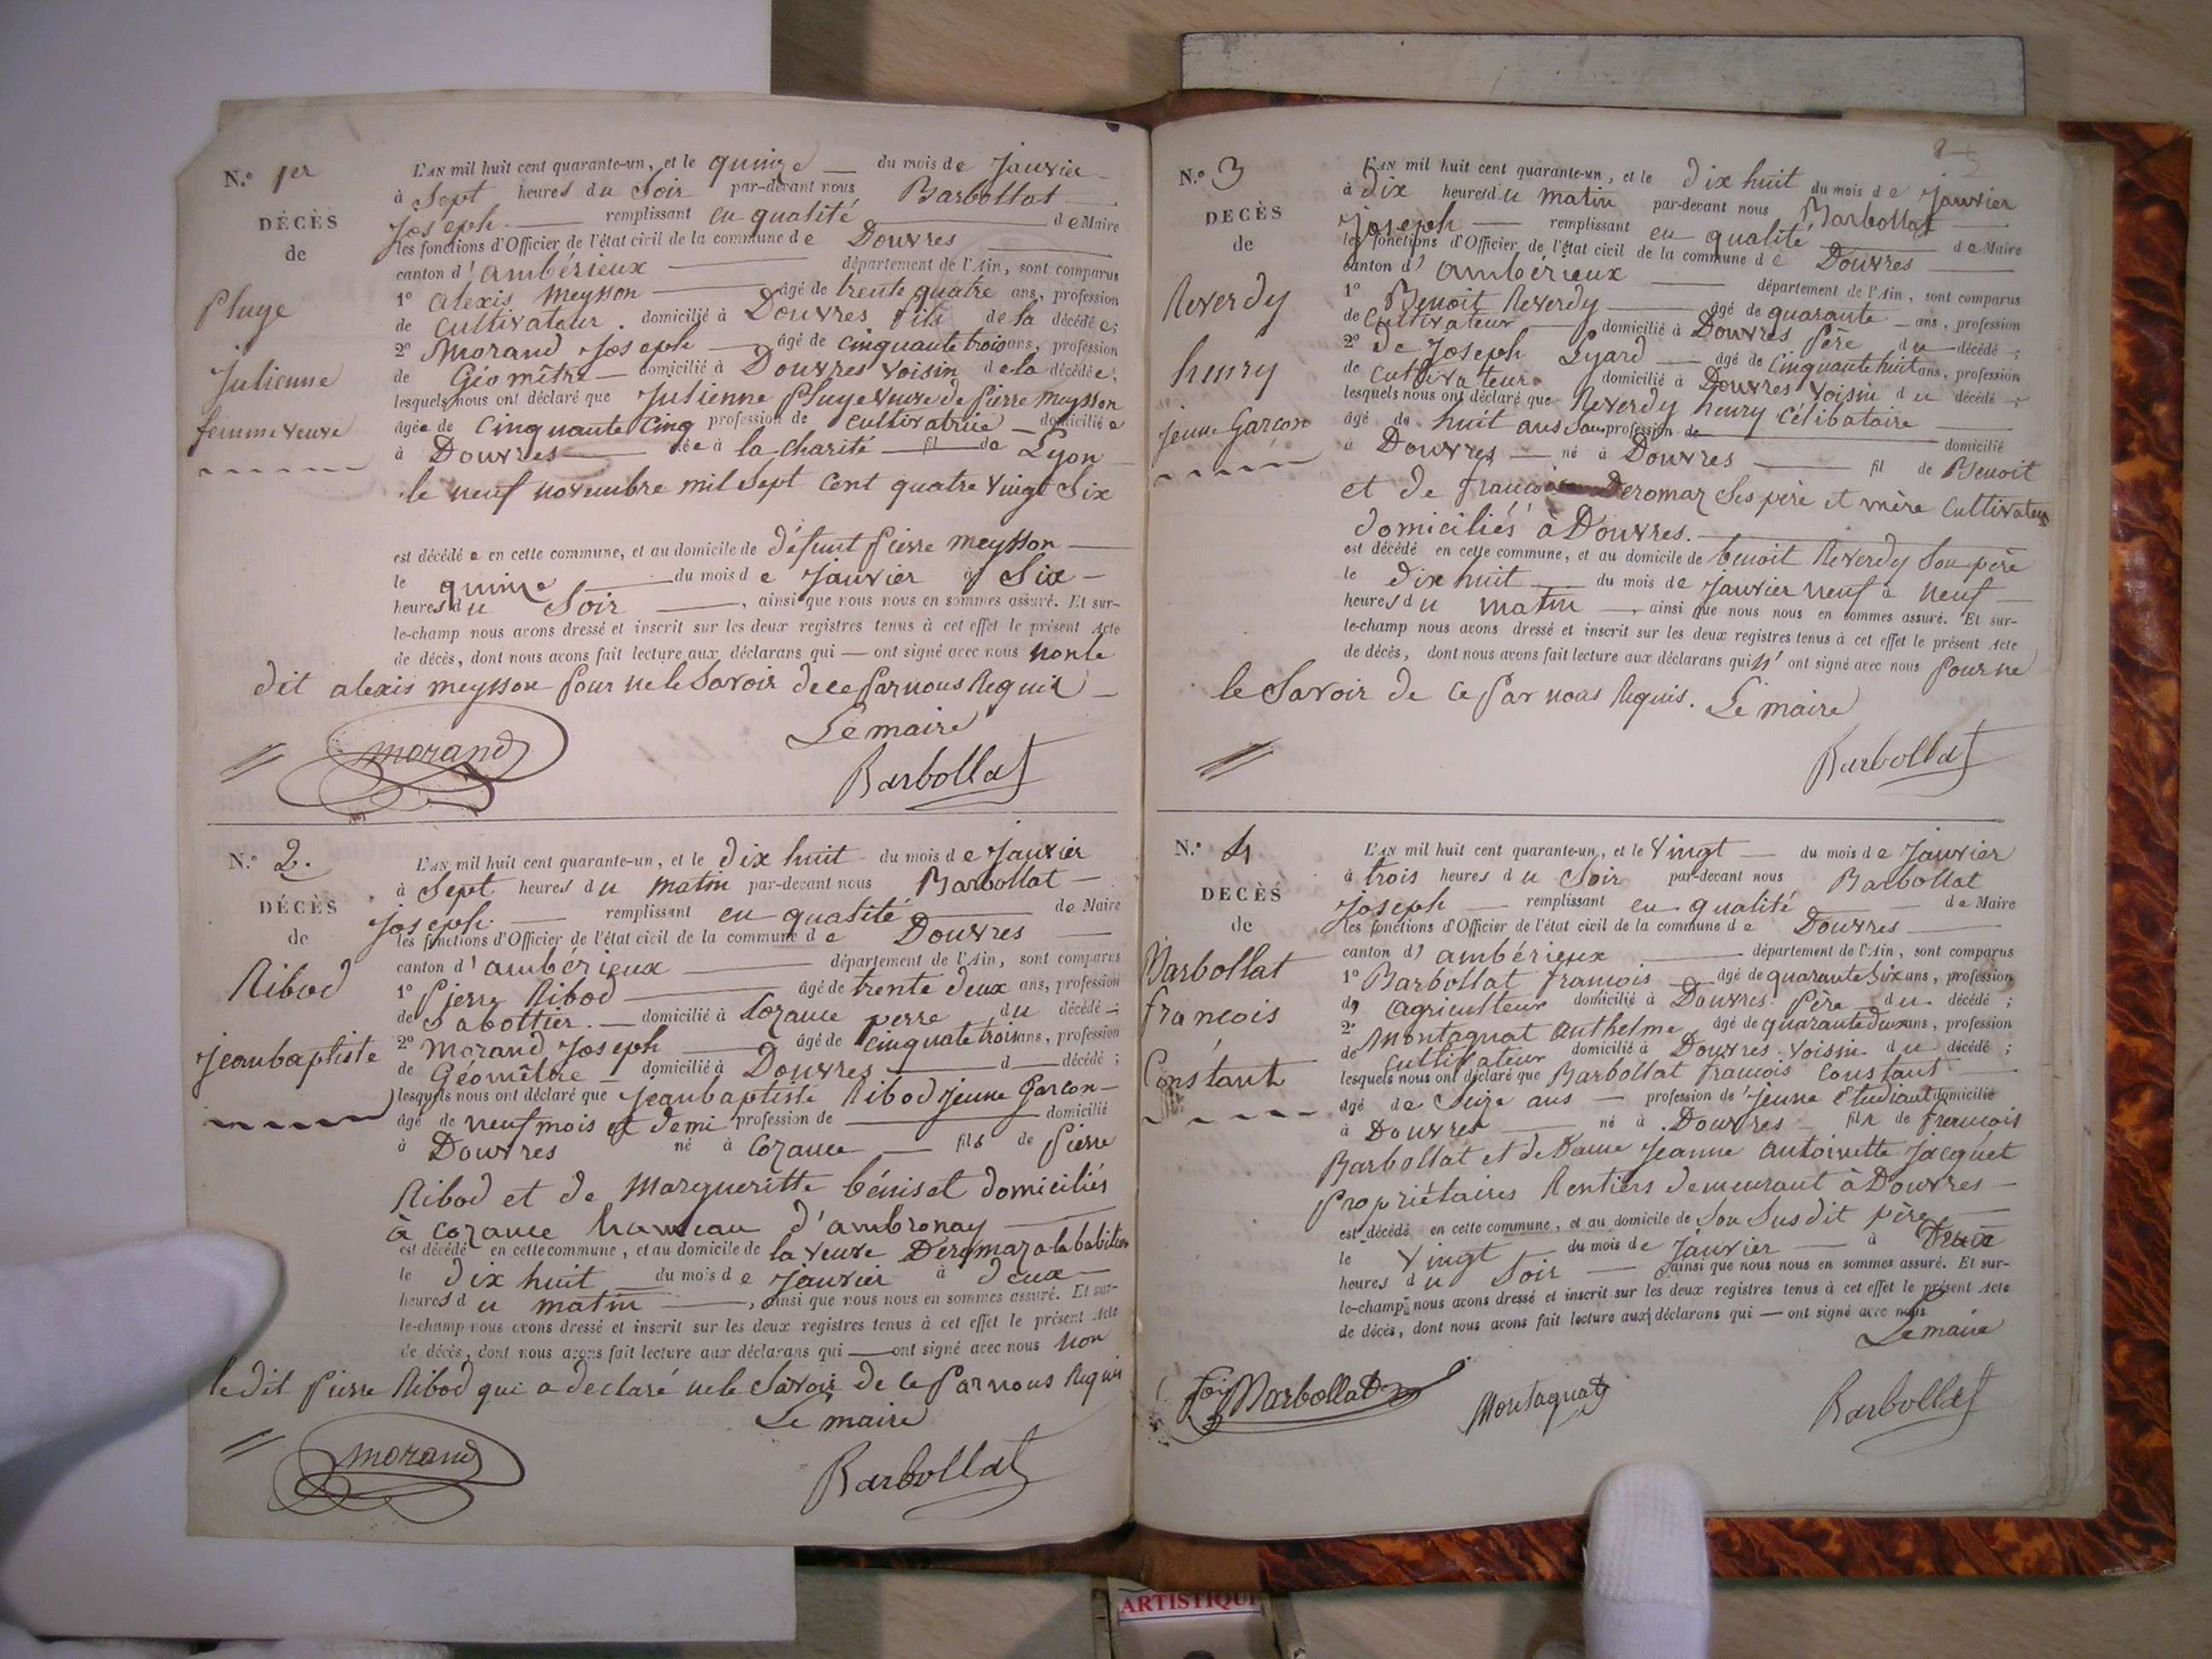 N.° 1er
DÉCÈS
de
Pluye
Julienne
femme veuve
L'AN mil huit cent quarante-un, et le quinze du mois de Janvier
à Sept heures du Soir par-devant nous Barbollat
Joseph remplissant en qualité de Maire
les fonctions d'Officier de l'état civil de la commune de Douvres
canton d'ambérieux département de l'Ain, sont comparus
1° alexis meysson âgé de trente quatre ans, profession
de Cultivateur. domicilié à Douvres fils de la décédée;
2° Morand Joseph âgé de cinquante trois ans, profession
de Géomètre domicilié à Douvres voisin de la décédée;
lesquels nous ont déclaré que Julienne Pluye veuve de pierre meysson
âgée de Cinquante Cinq profession de cultivatrice domiciliée
à Douvres née à la Charité fil de Lyon
le neuf novembre mil Sept Cent quatre vingt Six
est décédée en cette commune, et au domicile de défunt pierre meysson
le quinze du mois de Janvier à Six
heures du Soir, ainsi que nous nous en sommes assuré. Et sur-
le-champ nous avons dressé et inscrit sur les deux registres tenus à cet effet le présent Acte
de décès, dont nous avons fait lecture aux déclarans qui ont signé avec nous non le
dit alexis meysson pour ne le Savoir de ce par nous Requis
Le maire
morand
Barbollat
N.° 2.
DÉCÈS
de
Ribod
Jeanbaptiste
L'AN mil huit cent quarante-un, et le dix huit du mois de Janvier
à Sept heures du matin par-devant nous Barbollat
joseph remplissant en qualité de Maire
les fonctions d'Officier de l'état civil de la commune de Douvres
canton d'ambérieux département de l'Ain, sont comparus
1° Pierre Ribod âgé de trente deux ans, profession
de Sabottier. domicilié à Cozance perre du décédé;
2° Morand Joseph âgé de cinquate trois ans, profession
de Géomètre domicilié à Douvres d décédé;
lesquels nous ont déclaré que jeanbaptiste Ribod jeune Garcon
âgé de neuf mois et demi profession de domicilié
à Douvres né à Cozance fils de Pierre
Ribod et de Margueritte béniset domiciliés
à cozance hameau d'ambronay
est décédé en cette commune, et au domicile de la veuve Deromaz
le dix huit du mois de janvier à deux
heures du matin, ainsi que nous nous en sommes assuré. Et sur-
le-champ nous avons dressé et inscrit sur les deux registres tenus à cet effet le présent Acte
de décès, dont nous avons fait lecture aux déclarans qui ont signé avec nous non
le dit Pierre Ribod qui a declaré ne le Savoir de ce par nous Requis
Le maire
morand
Barbollat
N.° 3
DÉCÈS
de
Reverdy
henry
jeune Garçon
L'AN mil huit cent quarante-un, et le dix huit du mois de janvier
à dix heures du matin par-devant nous Barbollat
Joseph remplissant en qualité de Maire
les fonctions d'Officier de l'état civil de la commune de Douvres
canton d'ambérieux département de l'Ain, sont comparus
1° Benoit Reverdy âgé de quarante ans, profession
de Cultivateur domicilié à Douvres Père du décédé;
2° de Joseph Lyard âgé de Cinquante huit ans, profession
de Cultivateur domicilié à Douvres voisin du décédé;
lesquels nous ont déclaré que Reverdy henry Célibataire
âgé de huit ans Sans profession de domicilié
à Douvres né à Douvres fil de Benoit
et de françoise Deromaz Ses père et mère Cultivateurs
domiciliés à Douvres.
est décédé en cette commune, et au domicile de benoit Reverdy Son père
le dix huit du mois de janvier neuf à neuf
heures du matin, ainsi que nous nous en sommes assuré. Et sur-
le-champ nous avons dressé et inscrit sur les deux registres tenus à cet effet le présent Acte
de décès, dont nous avons fait lecture aux déclarans qui n'ont signé avec nous pour ne
le Savoir de ce par nous Requis. Le maire
Barbollat
N.° 4
DÉCÈS
de
Barbollat
françois
Constant
L'AN mil huit cent quarante-un, et le vingt du mois de Janvier
à trois heures du Soir par-devant nous Barbollat
Joseph remplissant en qualité de Maire
les fonctions d'Officier de l'état civil de la commune de Douvres
canton d'ambérieux département de l'Ain, sont comparus
1° Barbollat francois âgé de quarante Six ans, profession
d'agriculteur domicilié à Douvres Père du décédé;
2° Montagnat Anthelme âgé de quarante deux ans, profession
de Cultivateur domicilié à Douvres. Voisin du décédé;
lesquels nous ont déclaré que Barbollat francois Constant
âgé de Seize ans profession de jeune étudiant domicilié
à Douvres né à Douvres fils de francois
Barbollat et de Dame Jeanne Antoinette Jacquet
propriétaires Rentiers demeurant à Douvres
est décédé en cette commune, et au domicile de Son Susdit père
le vingt du mois de Janvier à Deux
heures du Soir, ainsi que nous nous en sommes assuré. Et sur-
le-champ nous avons dressé et inscrit sur les deux registres tenus à cet effet le présent Acte
de décès, dont nous avons fait lecture aux déclarans qui ont signé avec nous
Le maire
Barbollat
Montagnat
Barbollat
ARTISTIQUE